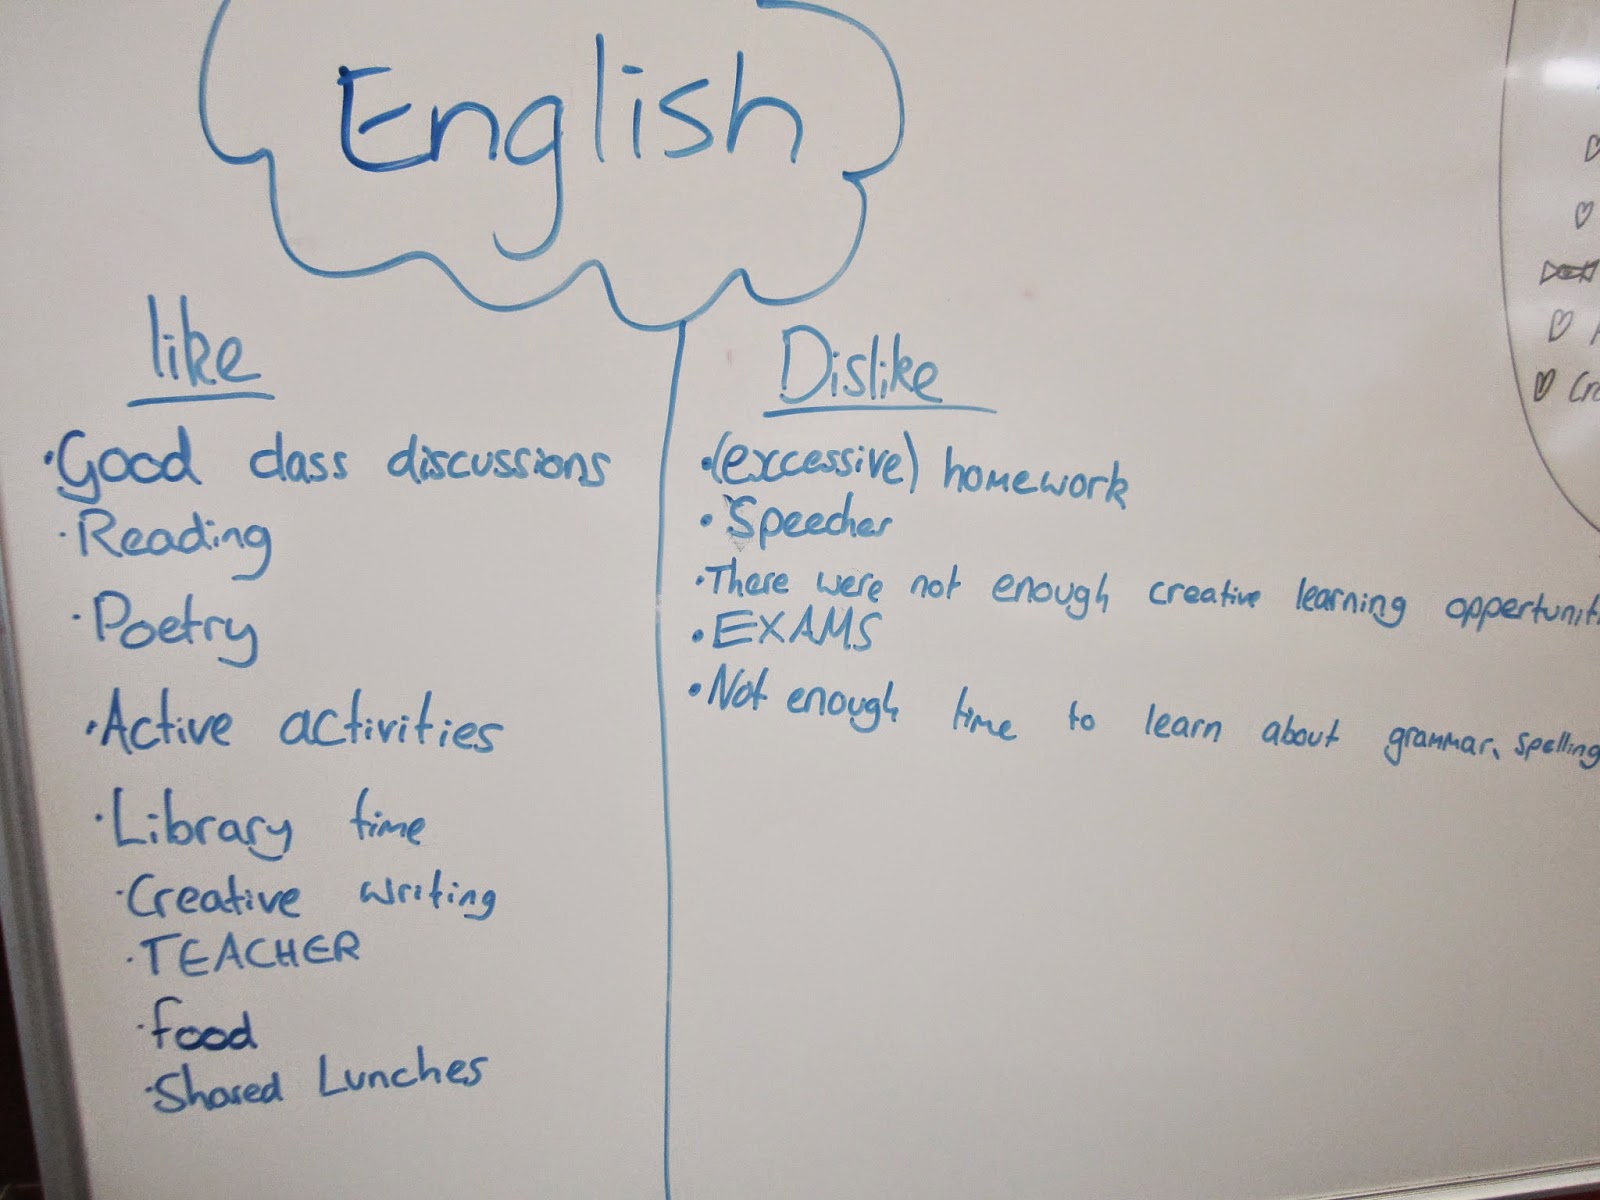 English
like
• Good class discussions
• Reading
• Poetry
• Active activities
• Library time
• Creative writing
• TEACHER
• food
• Shared Lunches
Dislike
• (excessive) homework
• Speeches
• There were not enough creative learning oppertuniti
• EXAMS
• Not enough time to learn about grammar, spelling